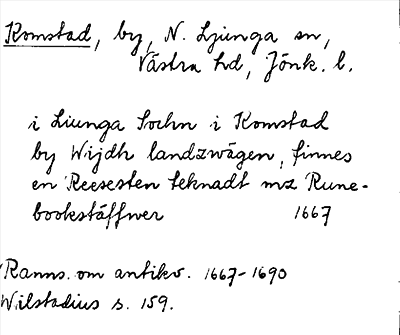 Komstad, by, N. Ljunga sn,
Västra hd, Jönk. l.
i Liunga Sochn i Komstad
by Wijdh landzwägen, finnes
en Reesesten teknadt mz Rune-
bookstäffwer 1667
Ranns. om antikv. 1667-1690
Wilstadius s. 159.